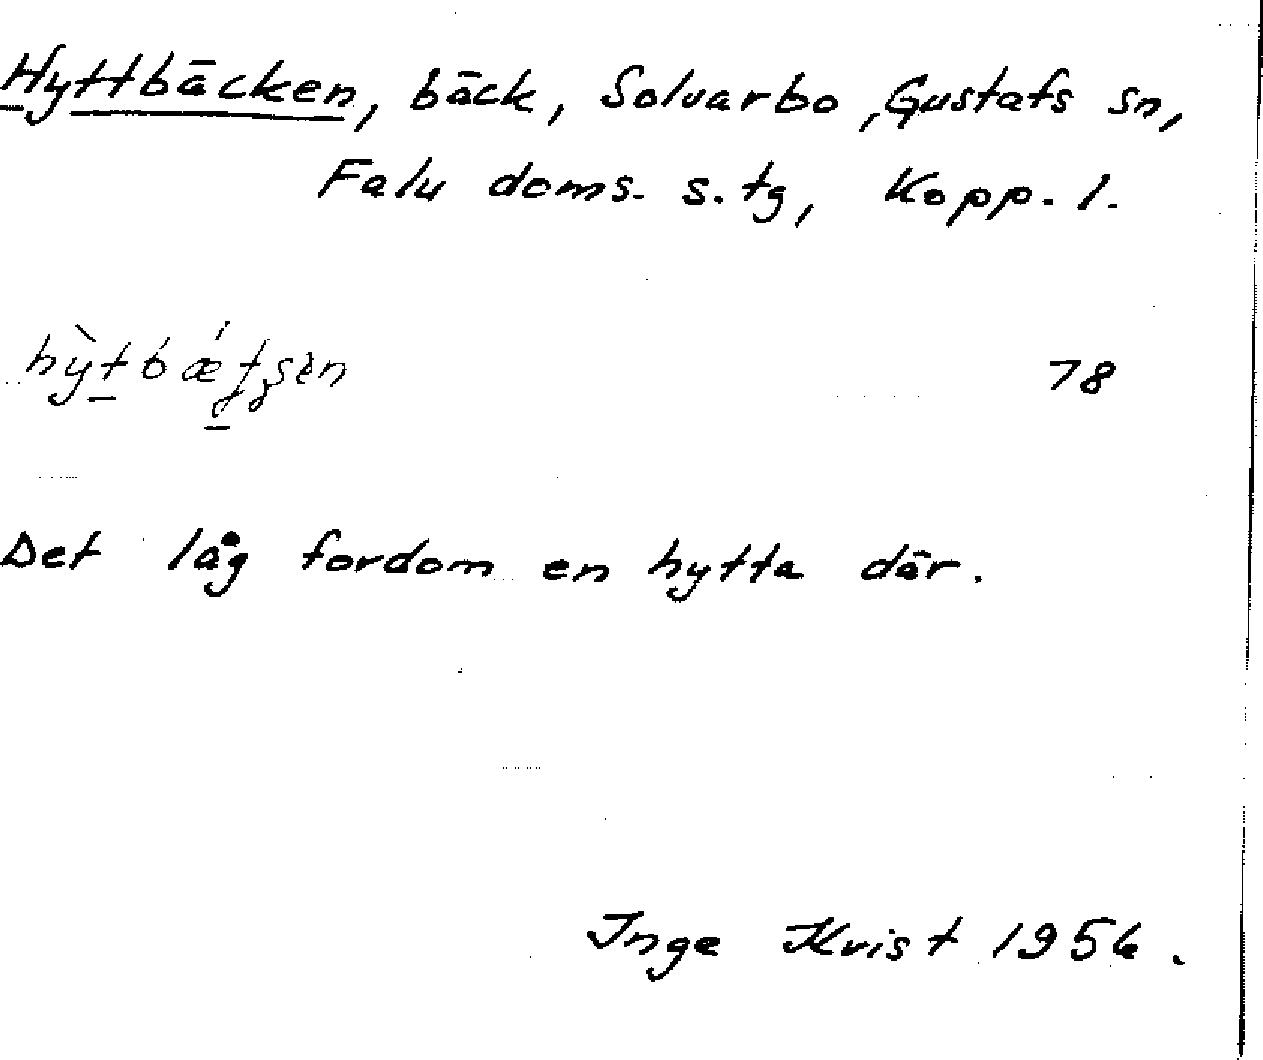 Hyttbäcken, bäck, Solvarbo, Gustafs sn,
Falu doms. s. tg, Kopp. l.
78
Det låg fordom en hytta där.
Inge Kvist 1956.